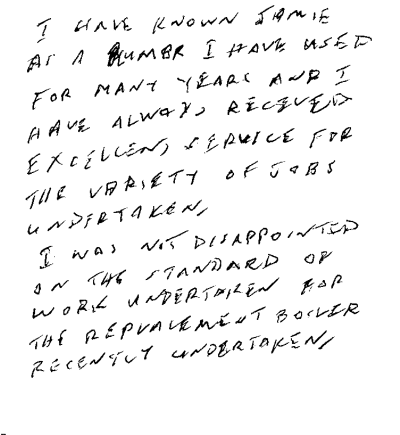 I HAVE KNOWN JAMIE
AS A PLUMBER I HAVE USED
FOR MANY YEARS AND I
HAVE ALWAYS RECEIVED
EXCELLENT SERVICE FOR
THE VARIETY OF JOBS
UNDERTAKEN,
I WAS NOT DISAPPOINTED
ON THE STANDARD OF
WORK UNDERTAKEN FOR
THE REPLACEMENT BOILER
RECENTLY UNDERTAKEN,